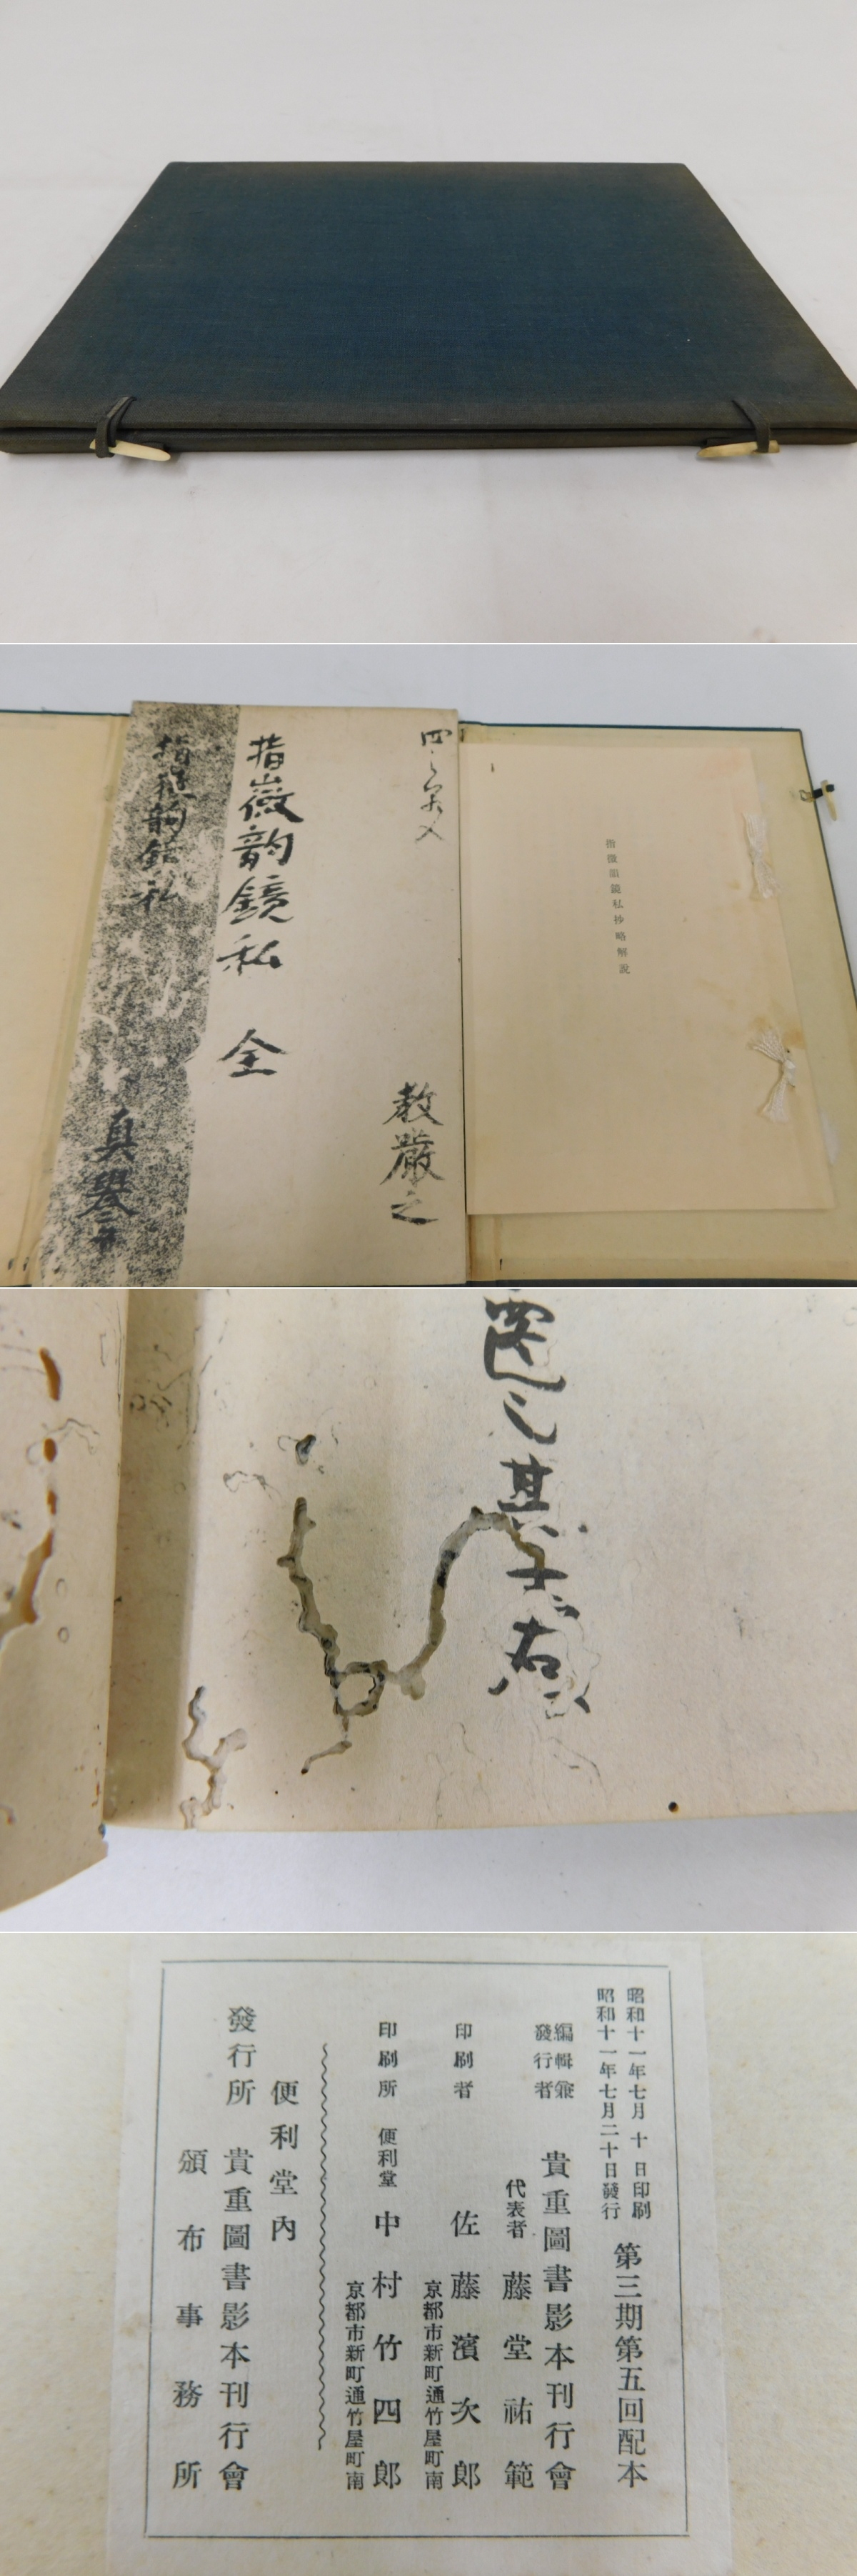 四之箱入
教嚴之
指微韵鏡私 全
指微韵鏡私
真譽
指微韻鏡私抄略解説
其字右
昭和十一年七月 十 日印刷
昭和十一年七月二十日發行
第三期第五回配本
編輯兼發行者
貴重圖書影本刊行會
代表者 藤堂祐範
印刷者 佐藤濱次郎
京都市新町通竹屋町南
印刷所 便利堂 中村竹四郎
京都市新町通竹屋町南
便利堂內
發行所 貴重圖書影本刊行會
頒布事務所